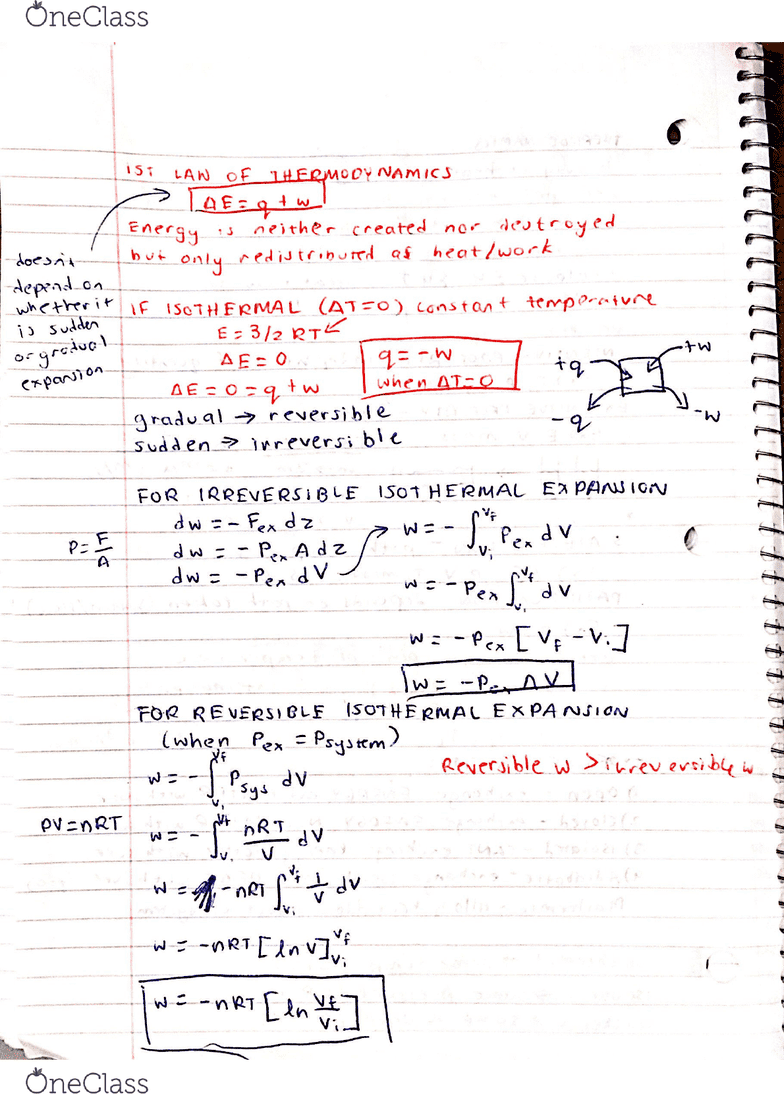 OneClass
1ST LAW OF THERMODYNAMICS
ΔE = q + w
Energy is neither created nor destroyed
but only redistributed as heat/work
doesn't
depend on
whether it
is sudden
or gradual
expansion
IF ISOTHERMAL (ΔT=0) constant temperature
E = 3/2 RT
ΔE = 0
ΔE = 0 = q + w
q = -w
when ΔT=0
+q
+w
-q
-w
gradual → reversible
sudden → irreversible
FOR IRREVERSIBLE ISOTHERMAL EXPANSION
P = F/A
dw = - Fex dz
dw = - Pex A dz
dw = - Pex dV
w = - ∫_{Vi}^{Vf} Pex dV
w = - Pex ∫_{Vi}^{Vf} dV
w = - Pex [Vf - Vi]
w = - Pex ΔV
FOR REVERSIBLE ISOTHERMAL EXPANSION
(when Pex = Psystem)
Reversible w > irreversible w
w = - ∫_{Vi}^{Vf} Psys dV
PV=nRT
w = - ∫_{Vi}^{Vf} nRT/V dV
w = -nRT ∫_{Vi}^{Vf} 1/V dV
w = -nRT [ln V]_{Vi}^{Vf}
w = -nRT [ln Vf/Vi]
OneClass